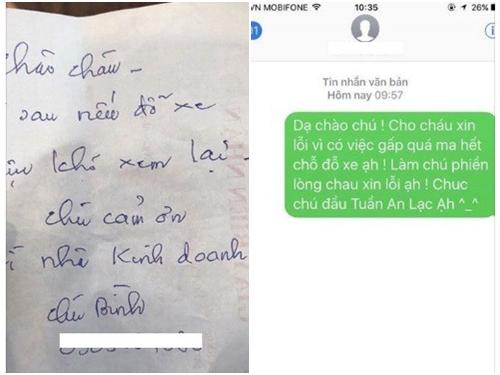 chào cháu -
sau nếu đỗ xe
khó xem lại -
chú cảm ơn
nhà Kinh doanh
chú Bình
VN MOBIFONE 10:35 26%
Tin nhắn văn bản
Hôm nay 09:57
Dạ chào chú ! Cho cháu xin
lỗi vì có việc gấp quá ma hết
chỗ đỗ xe ạh ! Làm chú phiền
lòng chau xin lỗi ạh ! Chuc
chú đầu Tuần An Lạc Ạh ^_^